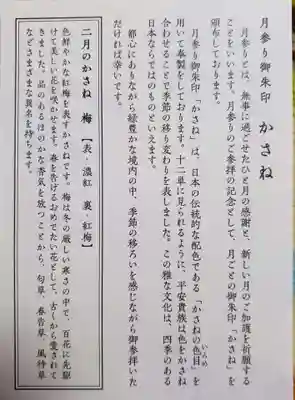 月参り御朱印　かさね
月参りとは、無事に過ごせたひと月の感謝と、新しい月のご加護を祈願する
ことをいいます。月参りのご参拝の記念として、月ごとの御朱印「かさね」を
頒布しております。
月参り御朱印「かさね」は、日本の伝統的な配色である「かさねの色目」を
いろめ
用いて奉製をしております。十二単に見られるように、平安貴族は色をかさね
合わせることで季節の移り変わりを表しました。この雅な文化は、四季のある
日本ならではのものといえます。
都心にありながら緑豊かな境内の中、季節の移ろいを感じながら御参拝いた
だければ幸いです。
二月のかさね　梅　【表・濃紅　裏・紅梅】
色鮮やかな紅梅を表すかさねです。梅は冬の厳しい寒さの中で、百花に先駆
けて美しい花を咲かせます。春を告げるおめでたい花として、古くから愛されて
きました。品のあるほのかな香気を放つことから、匂草、春告草、風待草
などさまざまな異名を持ちます。